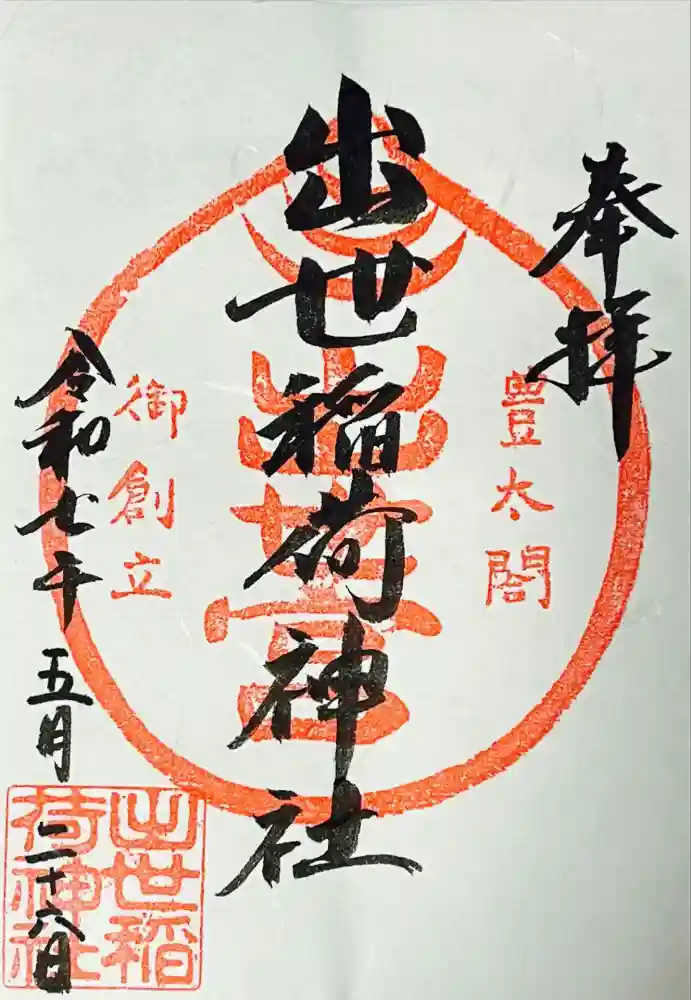 奉拝
豊太閤
出世稲荷神社
出世
御創立
令和七年
五月
二十八日
出世稲
荷神社